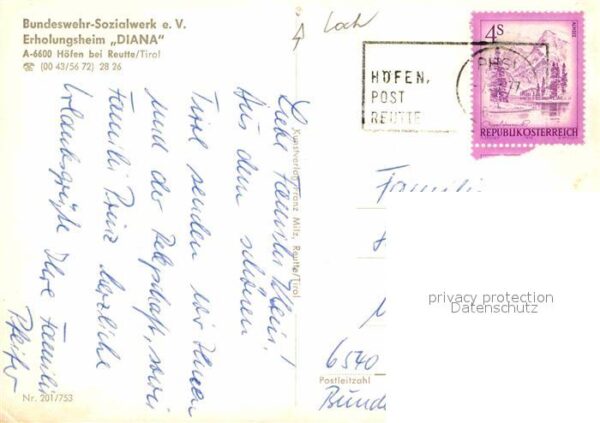 Bundeswehr-Sozialwerk e. V.
Erholungsheim „DIANA"
A-6600 Höfen bei Reutte/Tirol
☎ (00 43/56 72) 28 26
Loch
HÖFEN,
POST
REUTTE
4 S
REPUBLIK ÖSTERREICH
Liebe Familie
Aus dem schönen
Tirol senden wir Ihnen
und der Belegschaft, sowie
Familie Prinz herzliche
Urlaubsgrüße Ihre Familie
Pfeifer
Kunstverlag Franz Milz, Reutte/Tirol
Familie
privacy protection
Datenschutz
6540
Postleitzahl
Bunde
Nr. 201/753